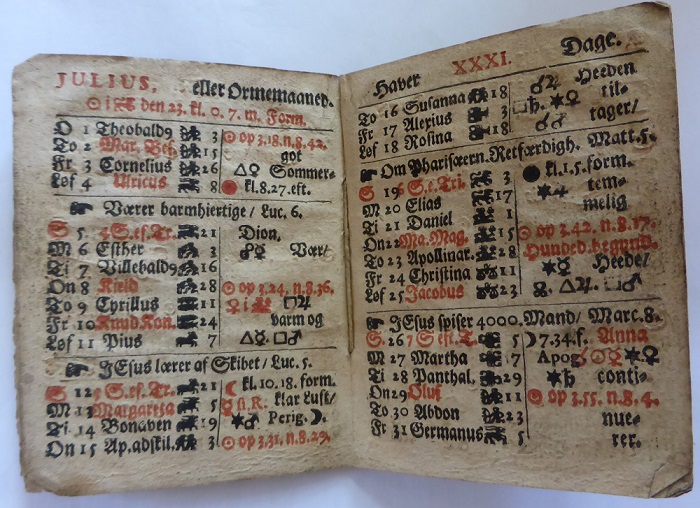 JULIUS, eller Ormemaaned.
☉ i ♌ den 23. kl. 0. 7. m. Form.
O 1 Theobald9 3 ☉ op 3.18. n. 8. 42.
To 2 Mar. Bes 15 got
Fr 3 Cornelius 26 △♀ Sommer-
Løf 4 Ulricus 8 kl. 8. 27. eft.
☛ Værer barmhiertige / Luc. 6.
S 5. 4 S. ef. Tr. 21 Dion.
M 6 Esther 3 Vær/
Ti 7 Villebald9 16
On 8 Kield 28 ☉ op 3. 24. n. 8. 36.
To 9 Cyrillus 11 ♀ i □♃
Fr 10 Knud Kon. 24 varm og
Løf 11 Pius 7 △☿ □♂
☛ JEsus lærer af Skibet / Luc. 5.
S 12 5 S. ef. Tr. 21 ☾ kl. 10. 18. form.
M 13 Margareta 5 ☿ st. R. klar Luft/
Ti 14 Bonaven 19 ✶♂ Perig. ☽.
On 15 Ap. adskil. 3 ☉ op 3. 31. n. 8. 29.
Haver XXXI. Dage.
To 16 Susanna 18 ♂♃ Heeden
Fr 17 Alexius 3 □♄. ✶♀ til-
Løf 18 Rosina 18 tager/
Om Phariseern. Retfærdigh. Matt. 5.
S 19 6 S. e. Tri. 3 kl. 1. 5. form.
M 20 Elias 17 tem-
Ti 21 Daniel 1 melig
On 22 Ma. Mag. 15 ☉ op 3. 42. n. 8. 17.
To 23 Apollinar. 28 Hunded. begynd.
Fr 24 Christina 11 ✶☿ Heede/
Løf 25 Jacobus 23 △♃. □♂
☛ JEsus spiser 4000. Mand/ Marc. 8.
S. 26 7 S. ef. T. 5 ☽ 7. 34. f. Anna
M 27 Martha 17 Apog ✶♀
Ti 28 Panthal. 29 ✶♄ conti-
On 29 Oluf 11 ☉ op 3. 55. n. 8. 4.
To 30 Abdon 23 nue-
Fr 31 Germanus 5 rer.